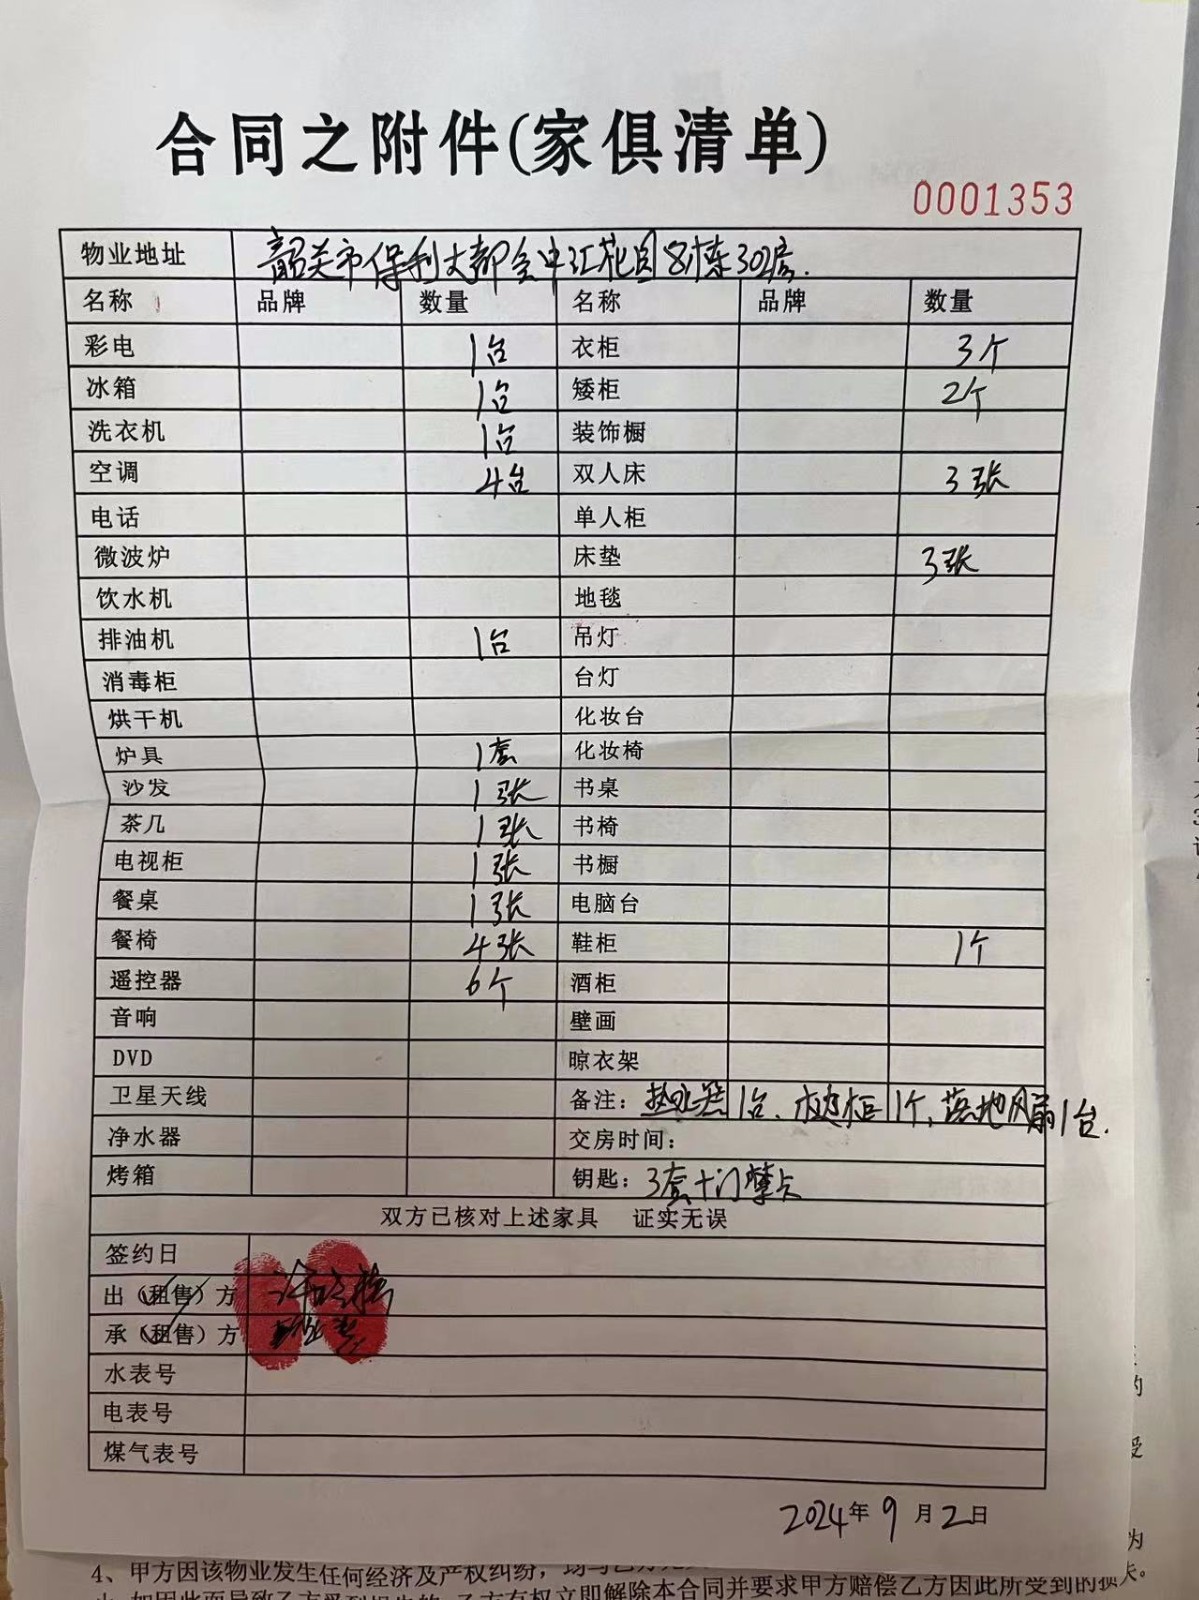 合同之附件(家俱清单)
0001353
物业地址 韶关市保利大都会中汇花园8栋302房.
名称 品牌 数量 名称 品牌 数量
彩电 1台 衣柜 3个
冰箱 1台 矮柜 2个
洗衣机 1台 装饰橱
空调 4台 双人床 3张
电话 单人柜
微波炉 床垫 3张
饮水机 地毯
排油机 1台 吊灯
消毒柜 台灯
烘干机 化妆台
炉具 1套 化妆椅
沙发 1张 书桌
茶几 1张 书椅
电视柜 1张 书橱
餐桌 1张 电脑台
餐椅 4张 鞋柜 1个
遥控器 6个 酒柜
音响 壁画
DVD 晾衣架
卫星天线 备注: 热水器1台、 1个, 落地风扇1台.
净水器 交房时间:
烤箱 钥匙: 3套+门禁卡
双方已核对上述家具 证实无误
签约日
出(租售)方
承(租售)方
水表号
电表号
煤气表号
2024年9月2日
4、甲方因该物业发生任何经济及产权纠纷,
有权立即解除本合同并要求甲方赔偿乙方因此所受到的损失。